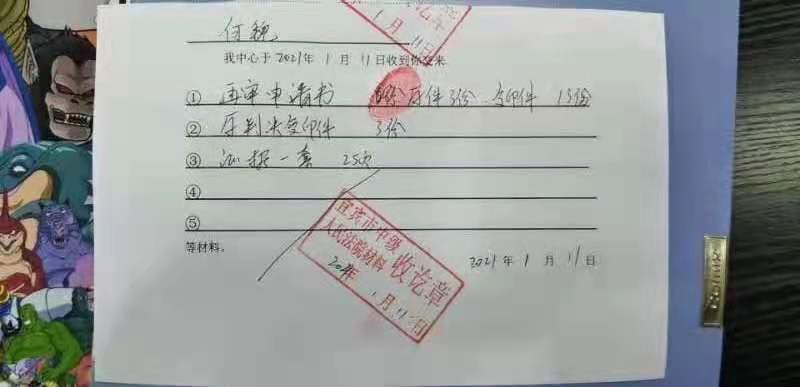 讫章
1月11日
何
我中心于2021年1月11日收到你交来
① 再审申请书 份原件3份、复印件13份
② 原判决复印件 3份
③ 一套 25页
④
⑤
等材料。
宜宾市中级
人民法院材料收讫章
2021年1月11日
2021年1月11日